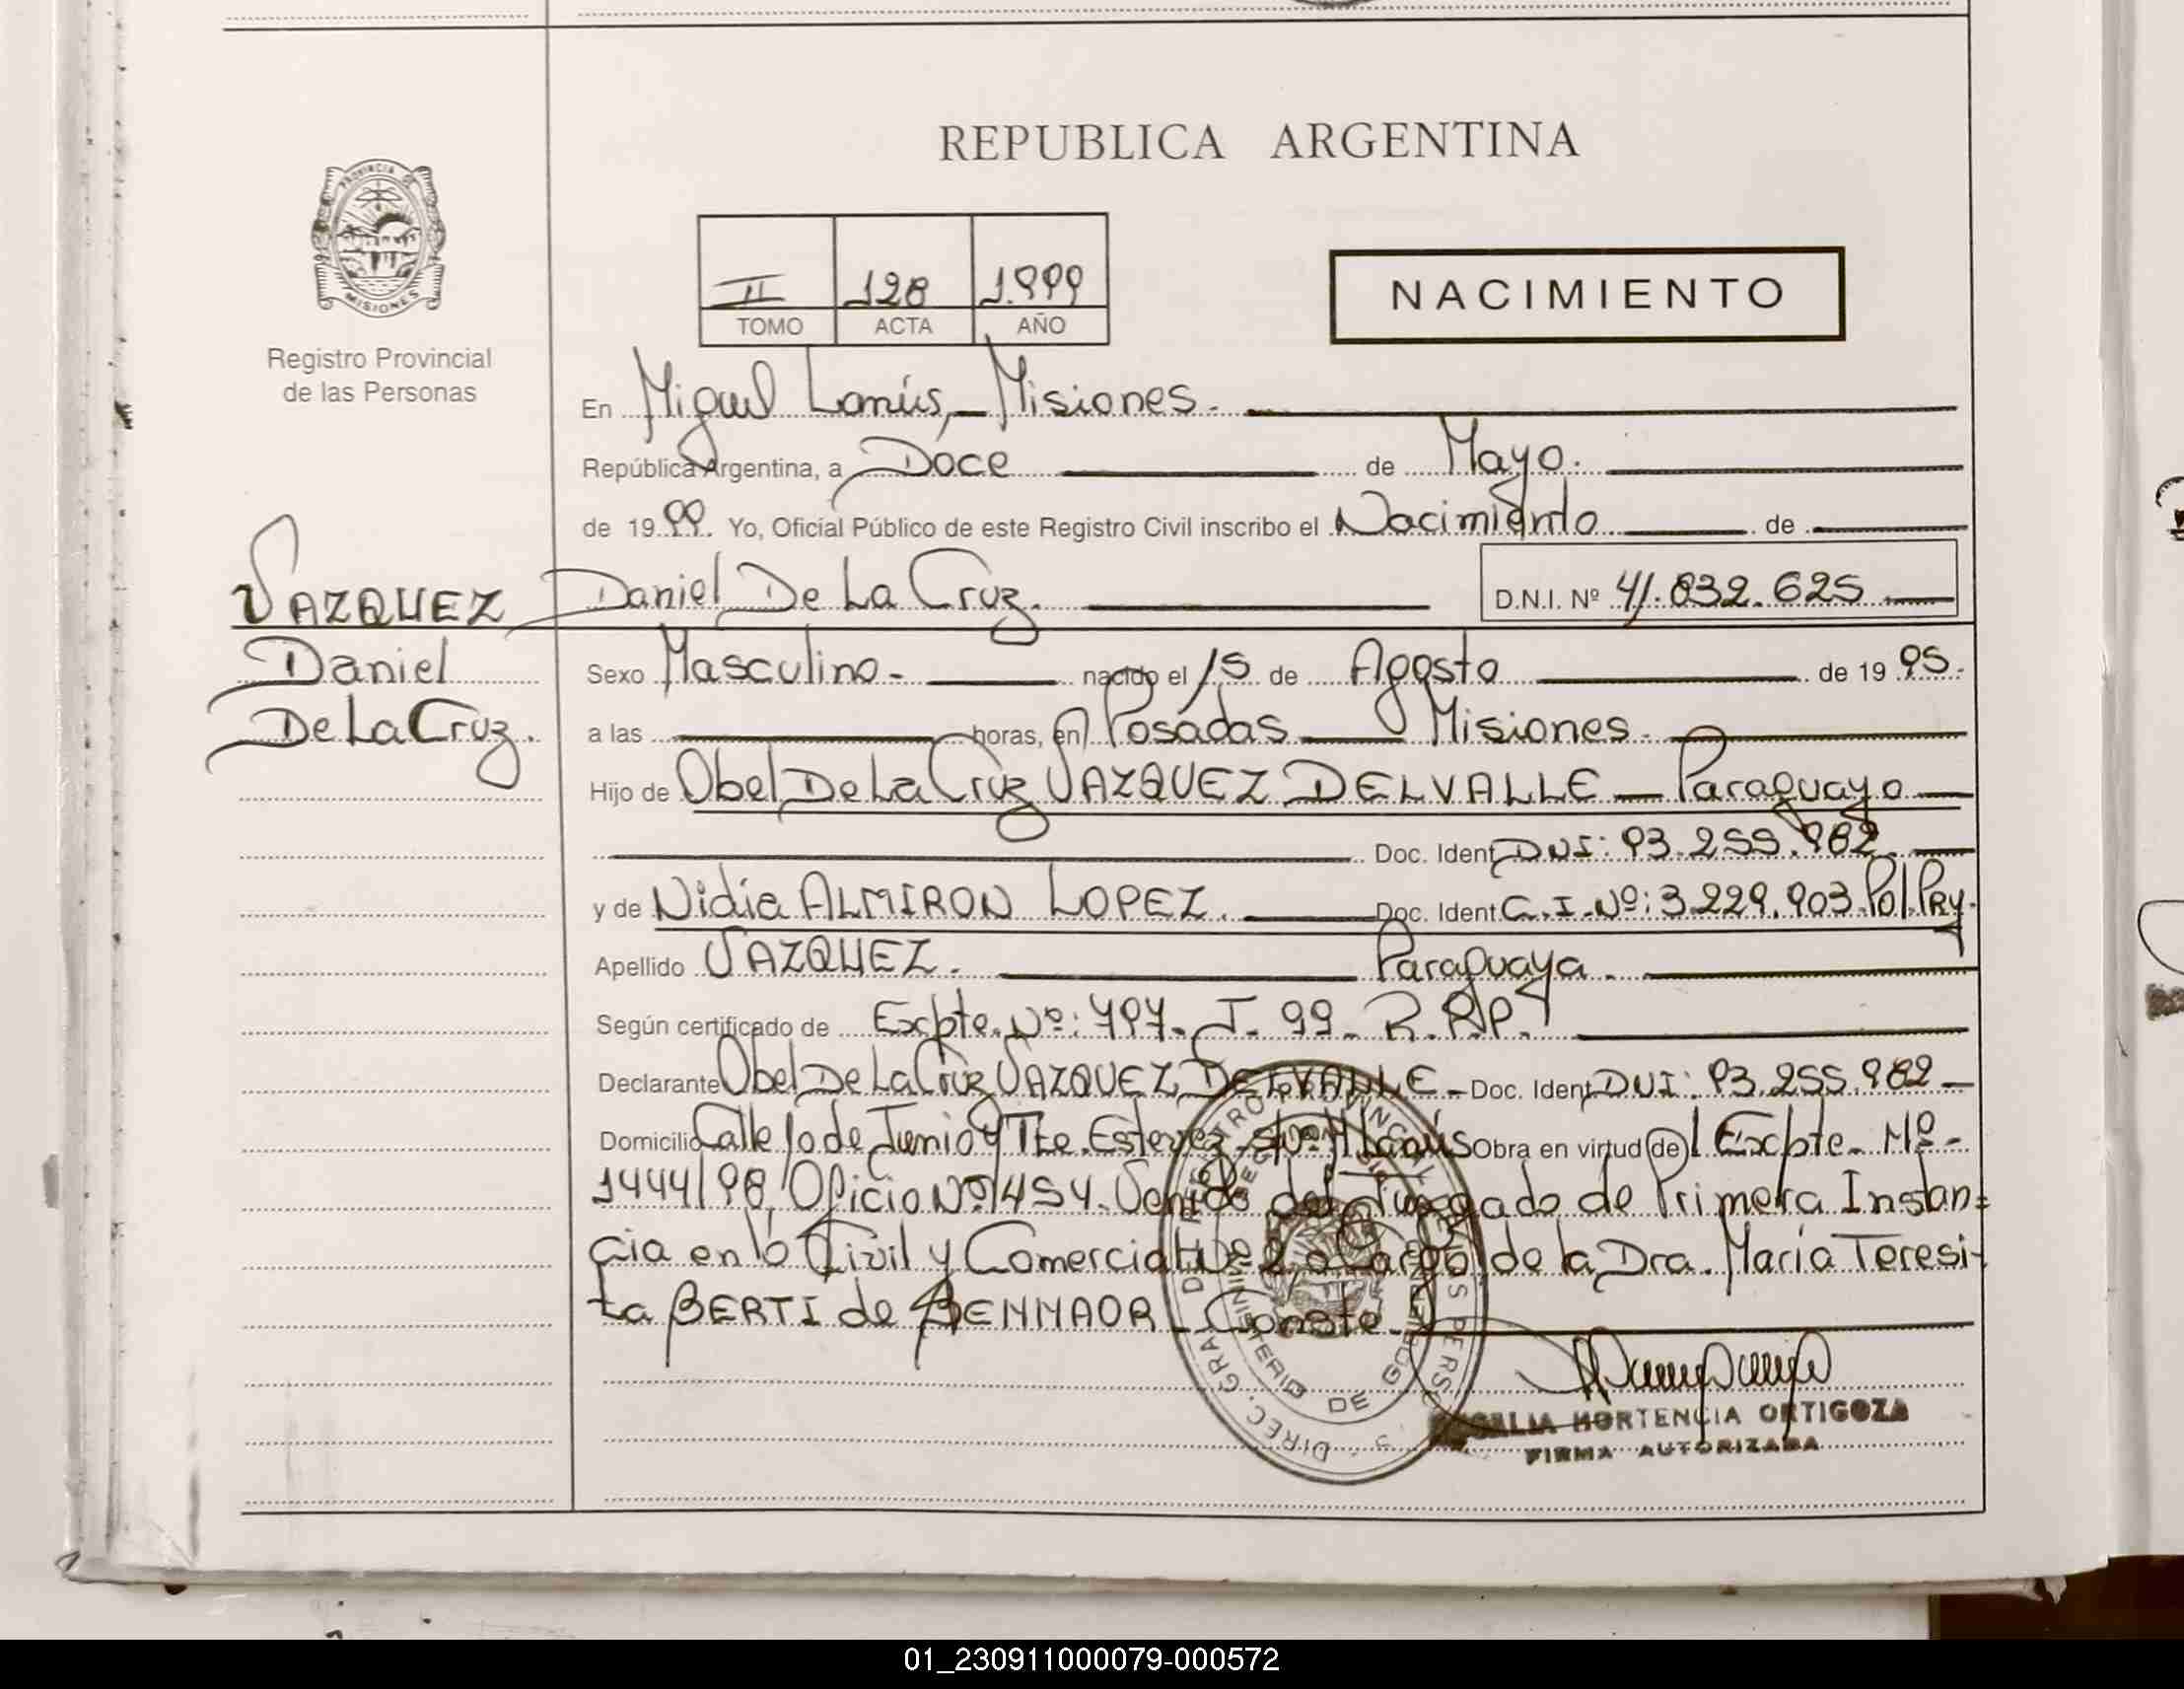 REPUBLICA ARGENTINA
PROVINCIA DE
MISIONES
Registro Provincial
de las Personas
II 128 1.999
TOMO ACTA AÑO
NACIMIENTO
En Miguel Lanús, Misiones.
República Argentina, a Doce de Mayo.
de 1999. Yo, Oficial Público de este Registro Civil inscribo el Nacimiento de
VAZQUEZ Daniel De La Cruz. D.N.I. Nº 41.832.625
Daniel
De La Cruz.
Sexo Masculino - nacido el 15 de Agosto de 1995.
a las horas, en Posadas Misiones.
Hijo de Obel De La Cruz VAZQUEZ DELVALLE - Paraguayo
Doc. Ident. DNI: 93.255.982
y de Nidia ALMIRON LOPEZ. Doc. Ident. C.I. Nº: 3.229.903 Pol. Pry.
Apellido VAZQUEZ. Paraguaya.
Según certificado de Expte. Nº: 797. J. 99. R.R.P.
Declarante Obel De La Cruz VAZQUEZ DELVALLE - Doc. Ident. DNI: 93.255.982
Domicilio Calle 10 de Junio y Tte. Estevez Obra en virtud del Expte. Nº
1444/98, Oficio Nº 1454. Venido del Juzgado de Primera Instan=
cia en lo Civil y Comercial Nº 2 a Cargo de la Dra. María Teresi-
ta BERTI de BENMAOR. Conste.
MINISTERIO DE GOBIERNO
HORTENCIA ORTIGOZA
FIRMA AUTORIZADA
01_230911000079-000572